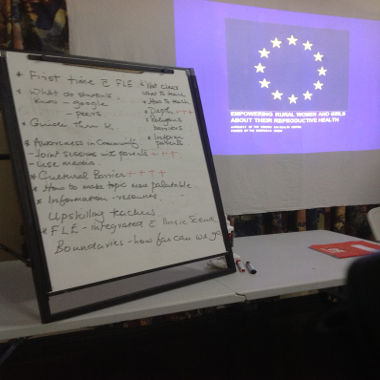 * First time c̄ FLE
* What do students
know - google
- peers
* Guide them
* Awareness in Community
- Joint sessions wt parents - + + +
- use media
* Cultural Barrier + + + +
* How to make topic more palatable
* Information - resources
Upskilling teachers
* FLE - integrated c̄ Basic Science
Boundaries - how far can we go
* Not clear
what to teach
* How to teach
* Depth + +
* Religious
barriers
* Inform
parents
EMPOWERING RURAL WOMEN AND GIRLS
ABOUT THEIR REPRODUCTIVE HEALTH
FUNDED BY THE EUROPEAN UNION